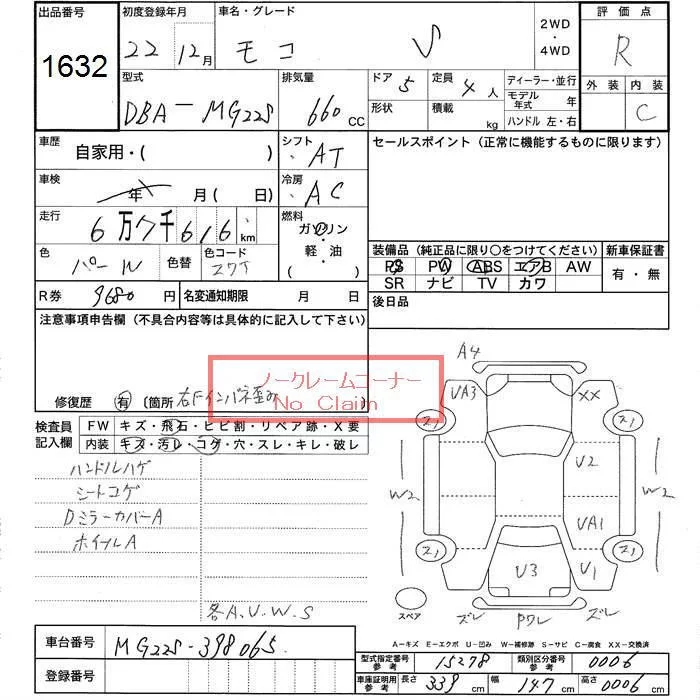 出品番号 1632
初度登録年月 22 12月
車名・グレード モコ V
2WD ・ 4WD
評価点 R
外装 内装 C
型式 DBA-MG22S
排気量 660 CC
ドア 5 形状
定員 4人 積載 kg
ディーラー・並行
モデル年式 年
ハンドル 左・右
車歴 自家用・( )
シフト AT
セールスポイント(正常に機能するものに限ります)
車検 年 月( 日)
冷房 AC
走行 6万7千616 km
燃料 ガソリン・軽・油 ( )
色 パール 色替 色コード
装備品(純正品に限り〇をつけてください) 新車保証書
PS PW ABS エアB AW 有・無
SR ナビ TV カワ
R券 9680円 名変通知期限 月 日
後日品
注意事項申告欄(不具合内容等は具体的に記入して下さい)
ノークレームコーナー
No Claim
修復歴 有 〔箇所 右Fインパネ歪み
検査員記入欄
FW キズ・飛石・ヒビ割・リペア跡・X要
内装 キズ・汚レ・コゲ・穴・スレ・キレ・破レ
ハンドルハゲ
シートコゲ
DミラーカバーA
ホイールA
各A.U.W.S
A4
UA3 XX
U2
W2 W2
UA1
U3 U1
スペア
ズレ Pワレ ズレ
A-キズ E-エクボ U-凹み W-補修跡 S-サビ C-腐食 XX-交換済
車台番号 MG22S-398065
登録番号
型式指定番号 参考 15278 類別区分番号 参考 0006
車庫証明用 参考 長さ 339 cm 幅 147 cm 高さ 0006 cm